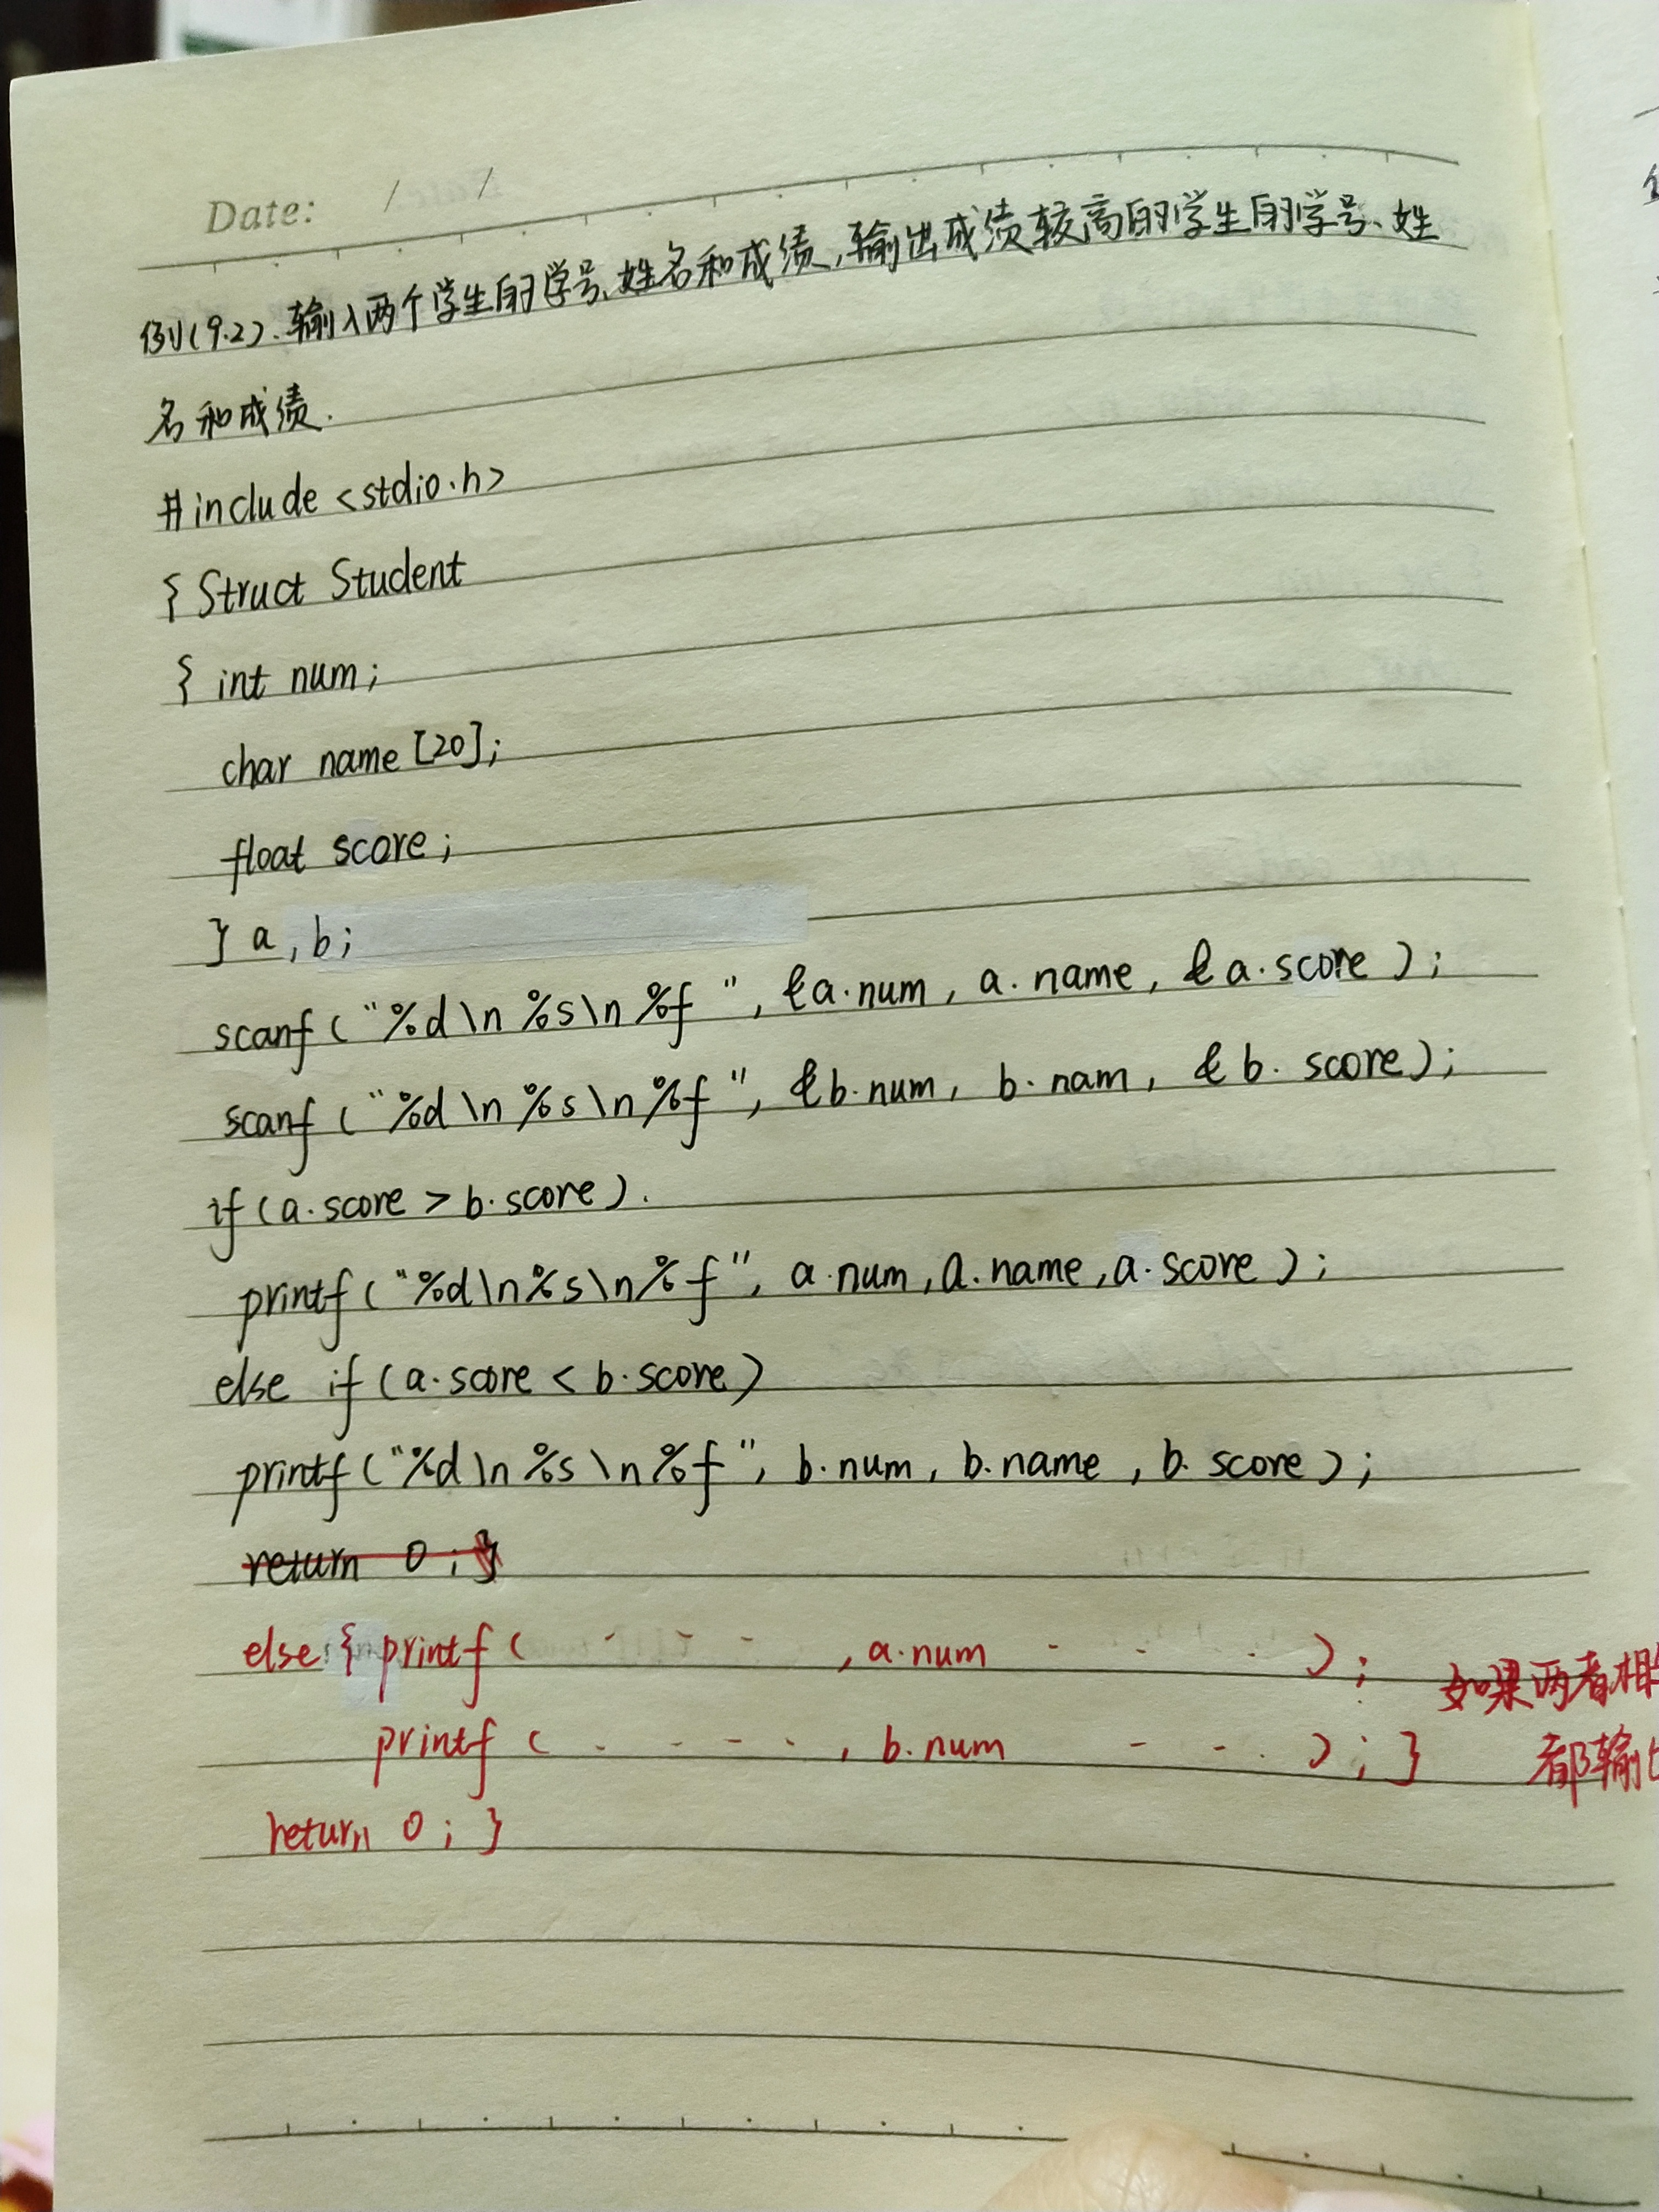 Date: / /
例(9.2). 输入两个学生的学号、姓名和成绩,输出成绩较高的学生的学号、姓
名和成绩.
#include <stdio.h>
{ Struct Student
{ int num;
char name [20];
float score;
} a, b;
scanf ("%d\n %s\n %f ", &a.num, a. name, & a. score );
scanf ("%d \n %s \n %f ", &b.num, b. nam, & b. score);
if (a. score > b. score ).
printf ("%d\n%s\n%f", a.num, a.name, a. score );
else if (a. score < b. score)
printf ("%d \n %s \n %f ", b.num, b.name , b. score );
return 0 ; }
else { printf ( - - - , a.num - - . ) ;
printf ( . - - - . , b.num - - . ) ; }
return 0 ; }
如果两者相
都输